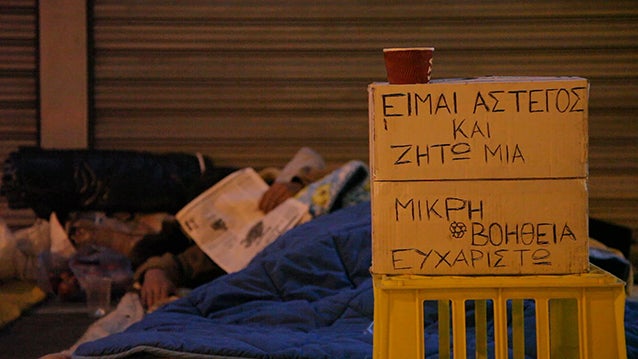 ΕΙΜΑΙ ΑΣΤΕΓΟΣ
ΚΑΙ
ΖΗΤΩ ΜΙΑ
ΜΙΚΡΗ
ΒΟΗΘΕΙΑ
ΕΥΧΑΡΙΣΤΩ